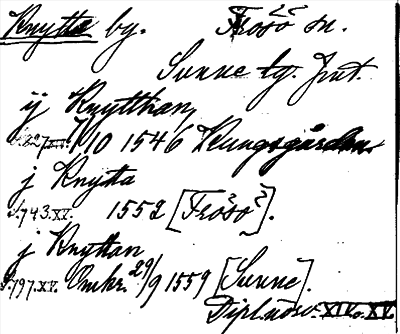 Knytta by. Frösö sn.
Sunne tg. Jmt.
ij Knytthan,
7/10 1546 Kungsgården
j Knytta
S.743.XV. 1552 [Frösö].
j Knyttan
S.797.XV. Omkr. 29/9 1559 [Sunne].
Dipl.nor. XIV o. XV.